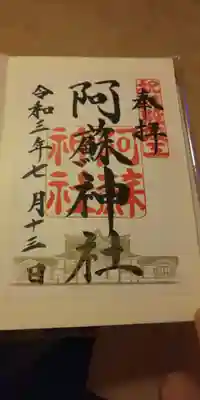 奉拝
阿蘇神社
阿蘇神社
令和三年七月十三日